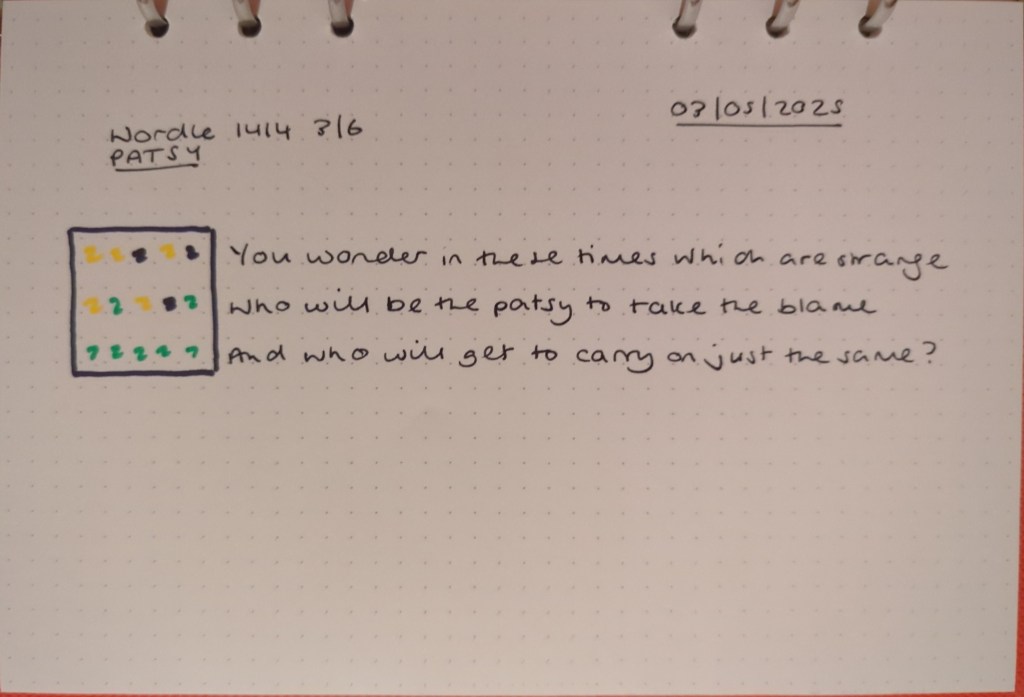 03/05/2025
Wordle 1414 3/6
PATSY
You wonder in these times which are strange
Who will be the patsy to take the blame
And who will get to carry on just the same?